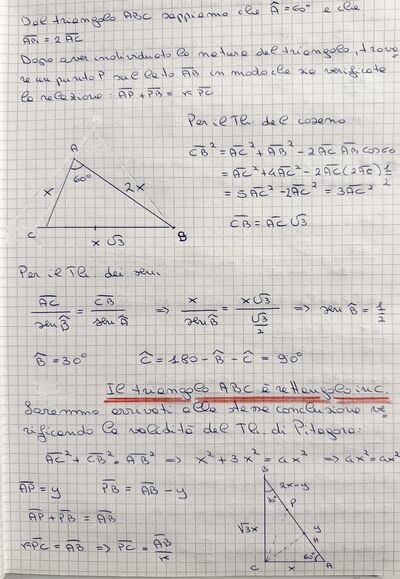 Del triangolo ABC sappiamo che Â=60° e che
AB = 2 AC
Dopo aver individuato la natura del triangolo, trova
re un punto P sul lato AB in modo che sia verificata
la relazione: AP + PB = k PC
Per il Th. del coseno
CB² = AC² + AB² - 2AC AB cos60
= AC² + 4AC² - 2AC(2AC) 1/2
= 5AC² - 2AC² = 3AC²
CB = AC √3
A
60°
x
2x
C
x √3
B
Per il Th. dei seni
AC/sen B̂ = CB/sen Â ⇒ x/sen B̂ = x√3/(√3/2) ⇒ sen B̂ = 1/2
B̂ = 30° Ĉ = 180 - B̂ - Ĉ = 90°
Il triangolo ABC è rettangolo in C.
Saremmo arrivati alla stessa conclusione ve
rificando la validità del Th. di Pitagora:
AC² + CB² = AB² ⇒ x² + 3x² = 4x² ⇒ 4x² = 4x²
AP = y PB = AB - y
AP + PB = AB
kPC = AB ⇒ PC = AB/k
B
30°
2x-y
P
√3x
y
H
60°
C
x
A